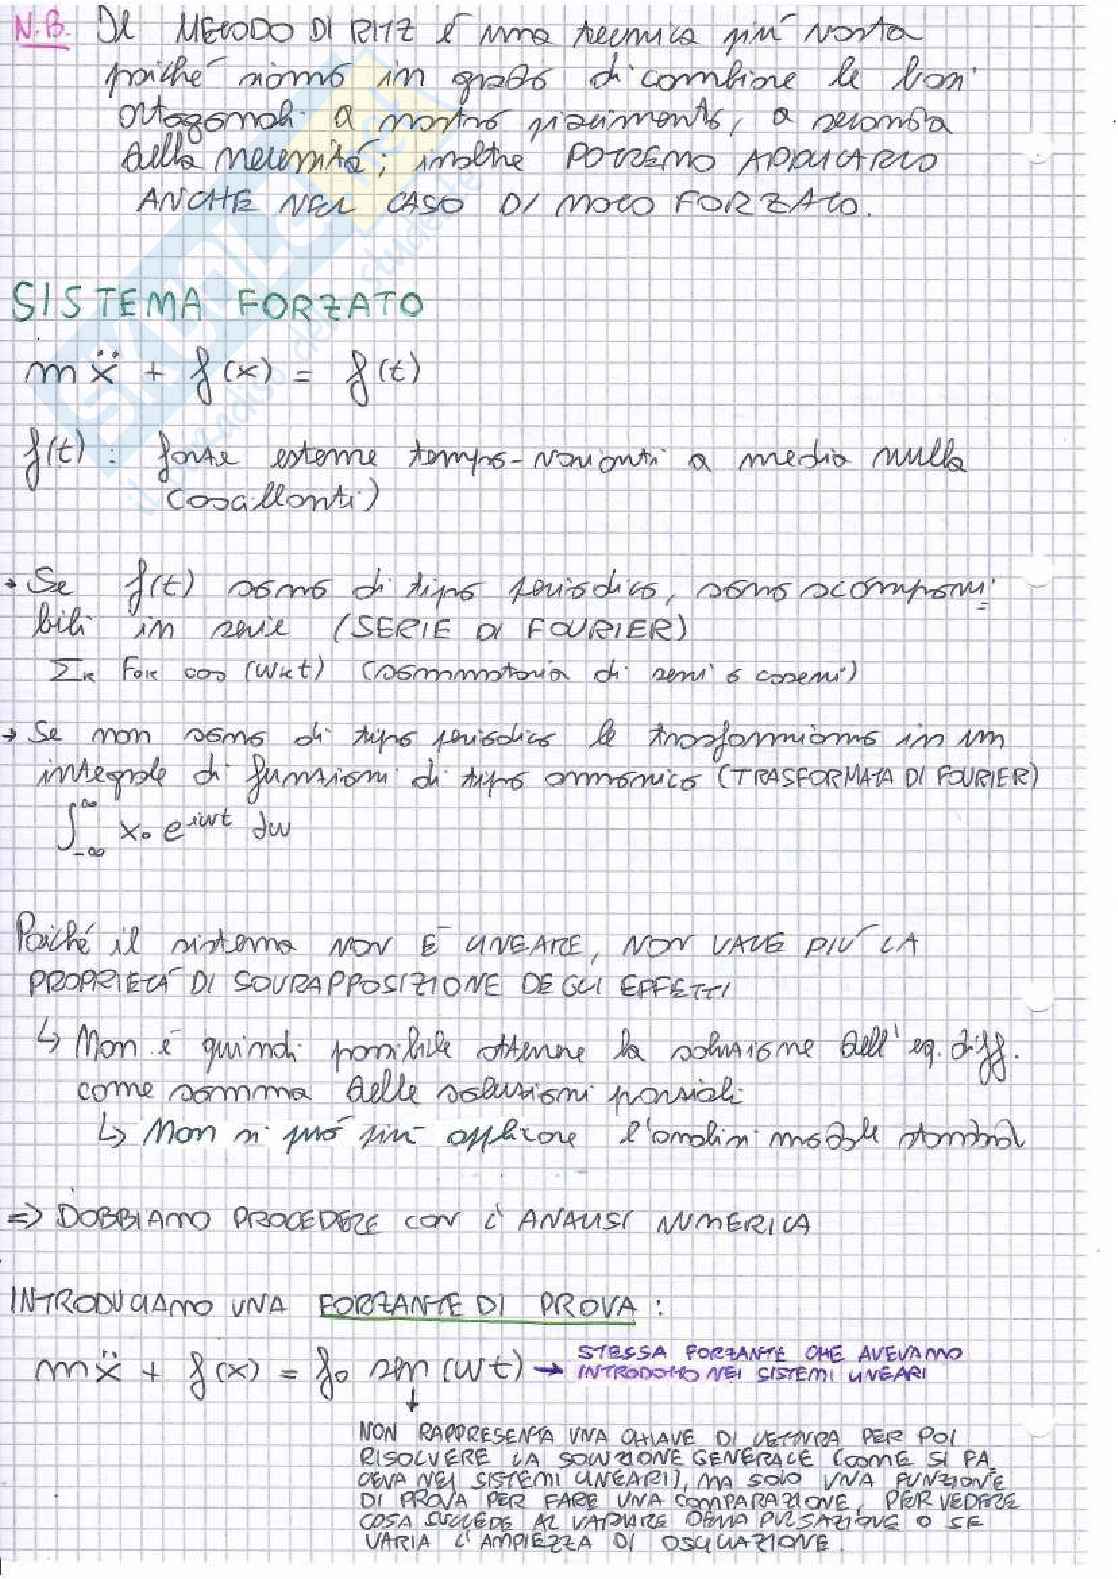 N.B. Il METODO DI RITZ è una tecnica più vasta
poiché siamo in grado di combinare le basi
ortogonali a nostro piacimento, a seconda
della necessità; inoltre POTREMO APPLICARLO
ANCHE NEL CASO DI MOTO FORZATO.
SISTEMA FORZATO
mẍ + f(x) = f(t)
f(t): forze esterne tempo-varianti a media nulla
(oscillanti)
→ Se f(t) sono di tipo periodico, sono scomponi=
bili in serie (SERIE DI FOURIER)
Σk F0k cos (ωkt) (sommatoria di seni o coseni)
→ Se non sono di tipo periodico le trasformiamo in un
integrale di funzioni di tipo armonico (TRASFORMATA DI FOURIER)
∫-∞^∞ x0 e^iωt dω
Poiché il sistema NON È LINEARE, NON VALE PIÙ LA
PROPRIETÀ DI SOVRAPPOSIZIONE DEGLI EFFETTI
↳ Non è quindi possibile ottenere la soluzione dell'eq. diff.
come somma delle soluzioni parziali
↳ Non si può più applicare l'analisi modale standard
⇒ DOBBIAMO PROCEDERE CON L'ANALISI NUMERICA
INTRODUCIAMO UNA FORZANTE DI PROVA:
mẍ + f(x) = f0 sen (ωt) → STESSA FORZANTE CHE AVEVAMO
INTRODOTTO NEI SISTEMI LINEARI
↓
NON RAPPRESENTA UNA CHIAVE DI LETTURA PER POI
RISOLVERE LA SOLUZIONE GENERALE (COME SI FA=
CEVA NEI SISTEMI LINEARI), MA SOLO UNA FUNZIONE
DI PROVA PER FARE UNA COMPARAZIONE, PER VEDERE
COSA SUCCEDE AL VARIARE DELLA PULSAZIONE O SE
VARIA L'AMPIEZZA DI OSCILLAZIONE.